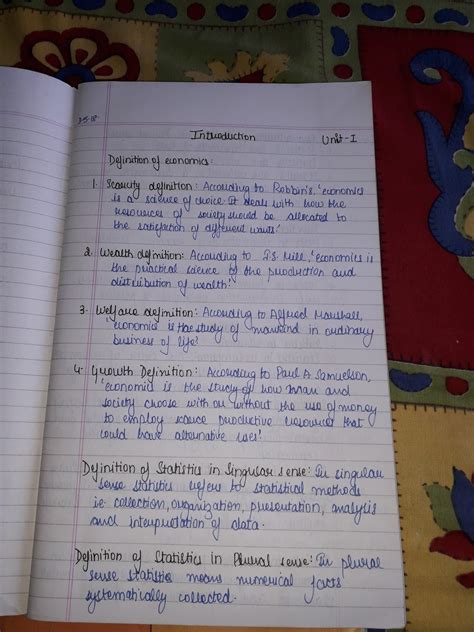 25.18
Introduction Unit-I
Definition of economics:
1. Scarcity definition: According to Robbin's, 'economics
is a science of choice It deals with how the
resources of society should be allocated to
the satisfaction of different wants.'
2. Wealth definition: According to J.S. Mill, 'economics is
the practical science of the production and
distribution of wealth.'
3. Welfare definition: According to Alfred Marshall,
'economics is the study of mankind in ordinary
business of life.'
4. Growth Definition: According to Paul A. Samuelson,
'economics is the study of how man and
society choose with or without the use of money
to employ scarce productive resources that
could have alternative uses.'
Definition of Statistics in Singular sense: In singular
sense statistics refers to statistical methods
i.e. collection, organization, presentation, analysis
and interpretation of data.
Definition of Statistics in Plural sense: In plural
sense statistics means numerical facts
systematically collected.